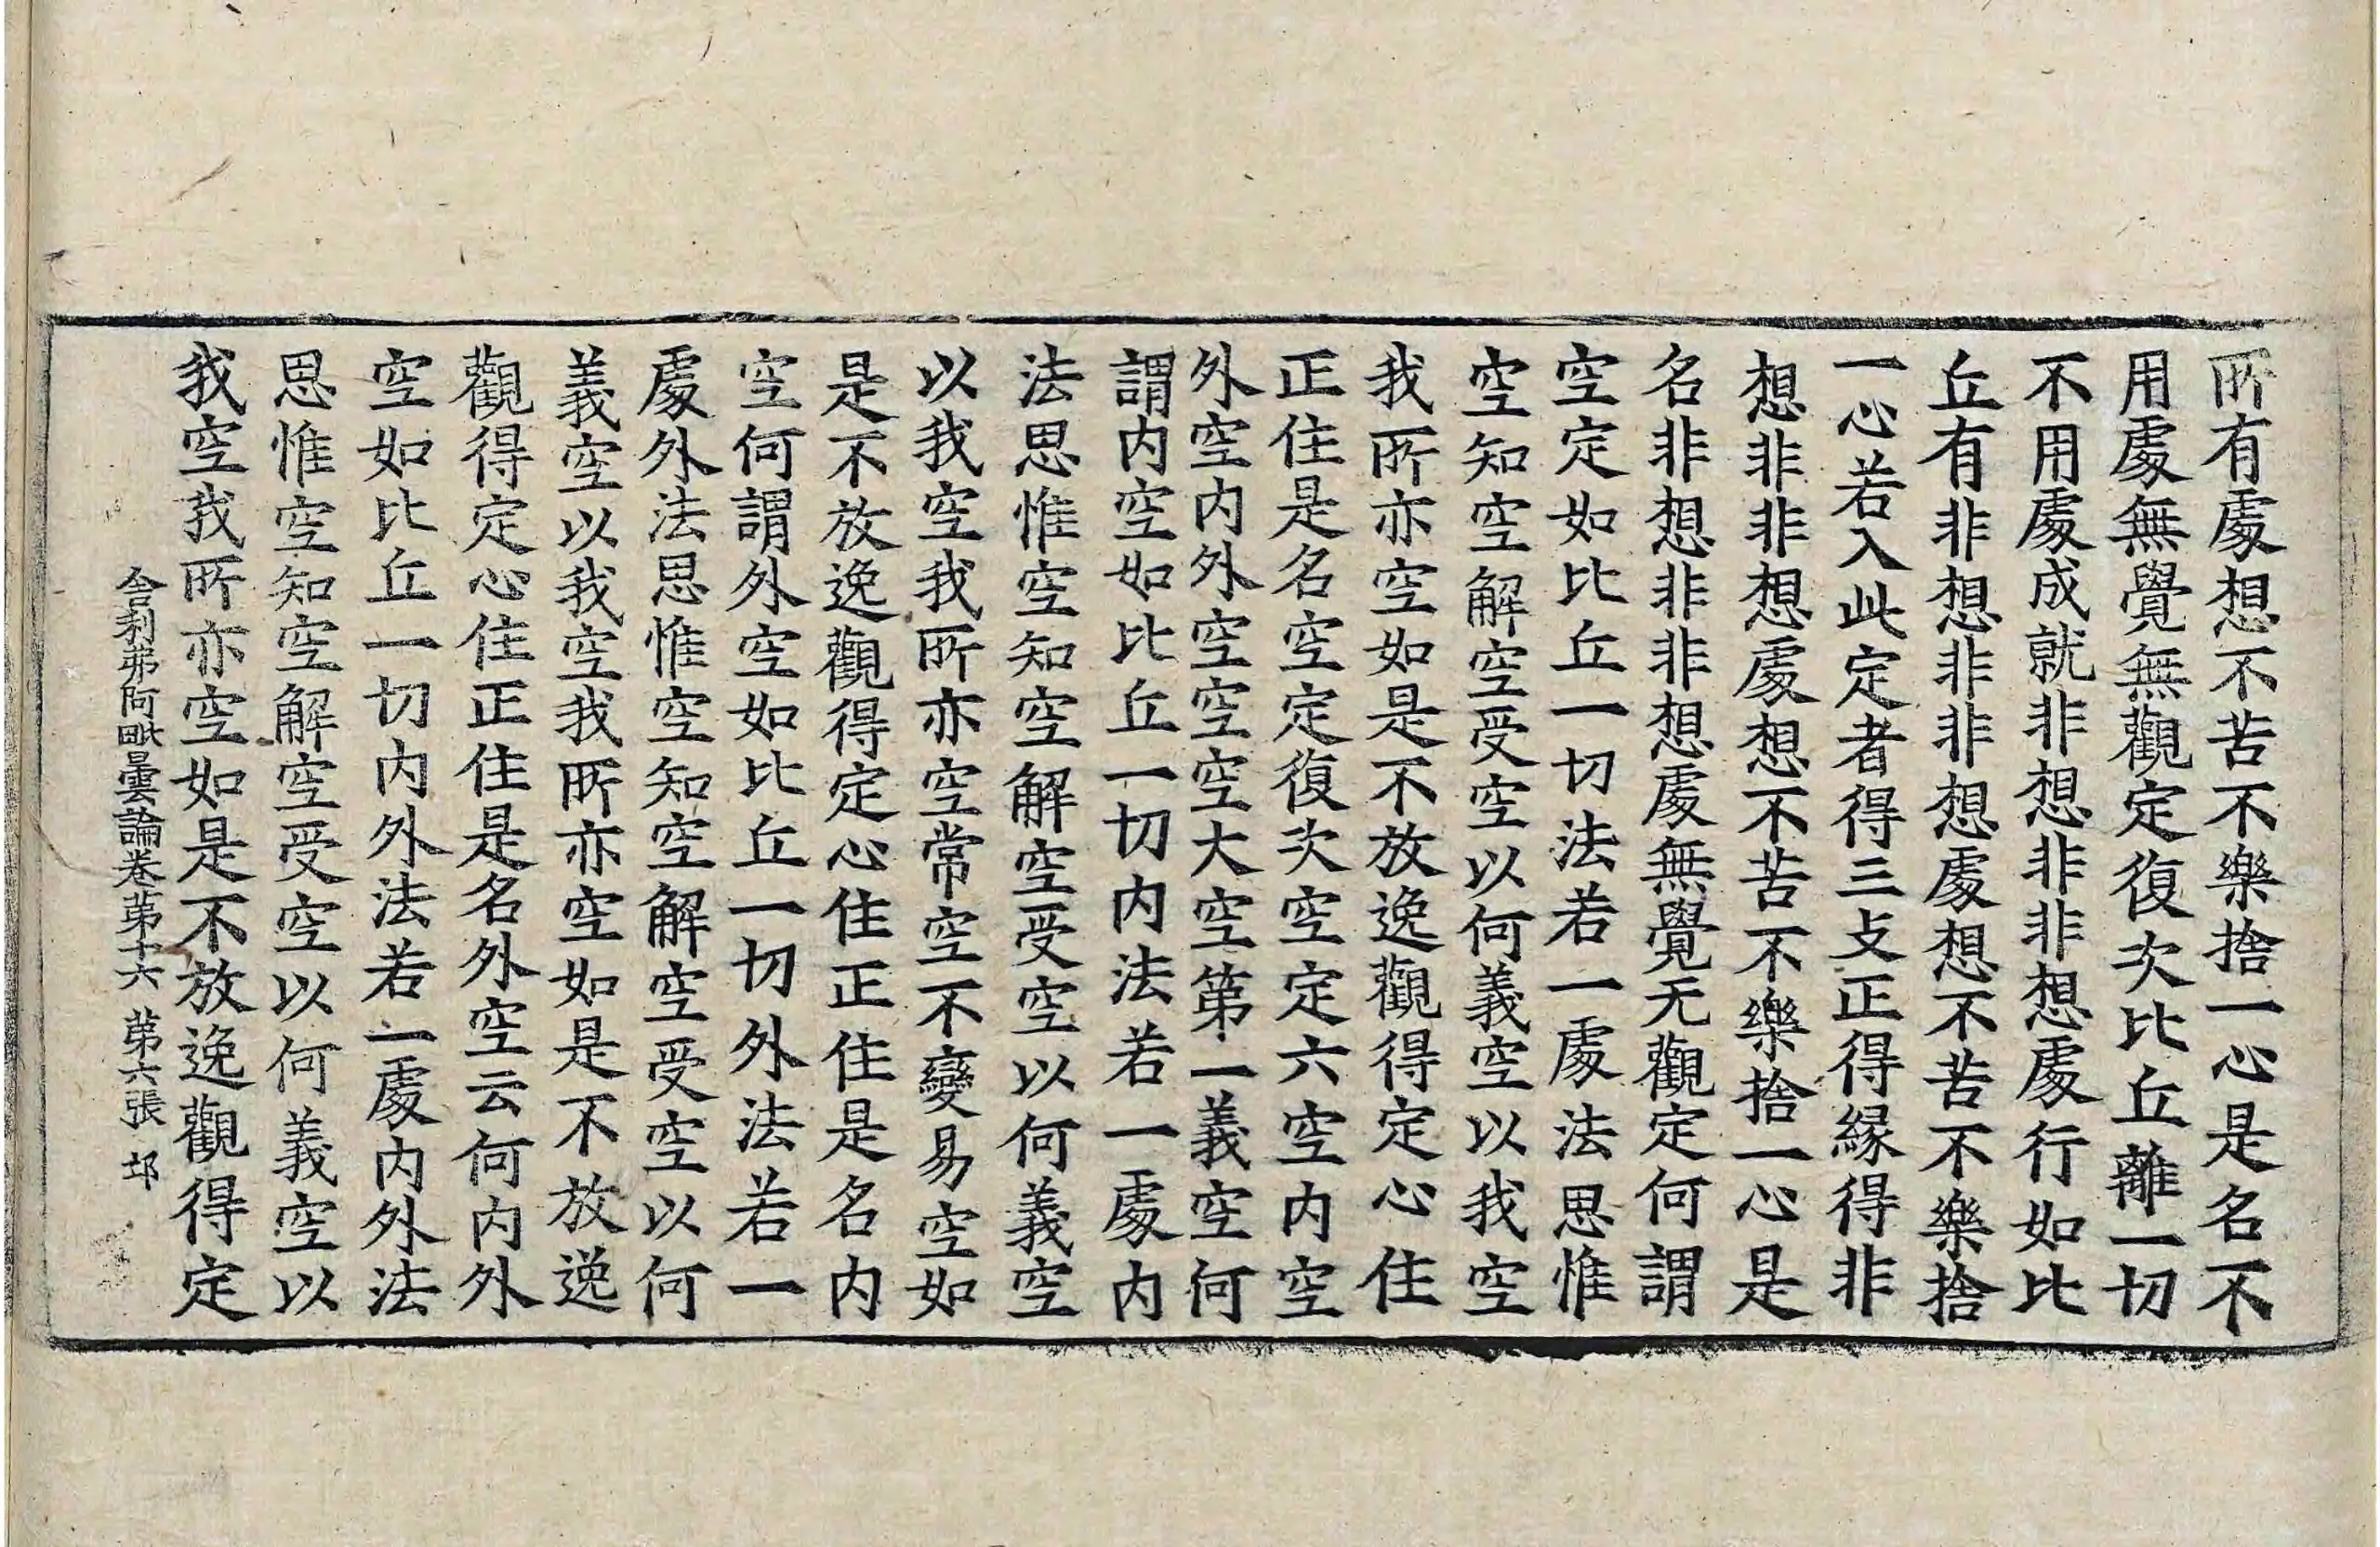 所有處想不苦不樂捨一心是名不
用處無覺無觀定復次比丘離一切
不用處成就非想非非想處行如比
丘有非想非非想處想不苦不樂捨
一心若入此定者得三支正得緣得非
想非非想處想不苦不樂捨一心是
名非想非非想處無覺无觀定何謂
空定如比丘一切法若一處法思惟
空知空解空受空以何義空以我空
我所亦空如是不放逸觀得定心住
正住是名空定復次空定六空內空
外空內外空空空大空第一義空何
謂內空如比丘一切內法若一處內
法思惟空知空解空受空以何義空
以我空我所亦空常空不變易空如
是不放逸觀得定心住正住是名內
空何謂外空如比丘一切外法若一
處外法思惟空知空解空受空以何
義空以我空我所亦空如是不放逸
觀得定心住正住是名外空云何內外
空如比丘一切內外法若一處內外法
思惟空知空解空受空以何義空以
我空我所亦空如是不放逸觀得定
舍利弗阿毗曇論卷第十六 第六張 邙